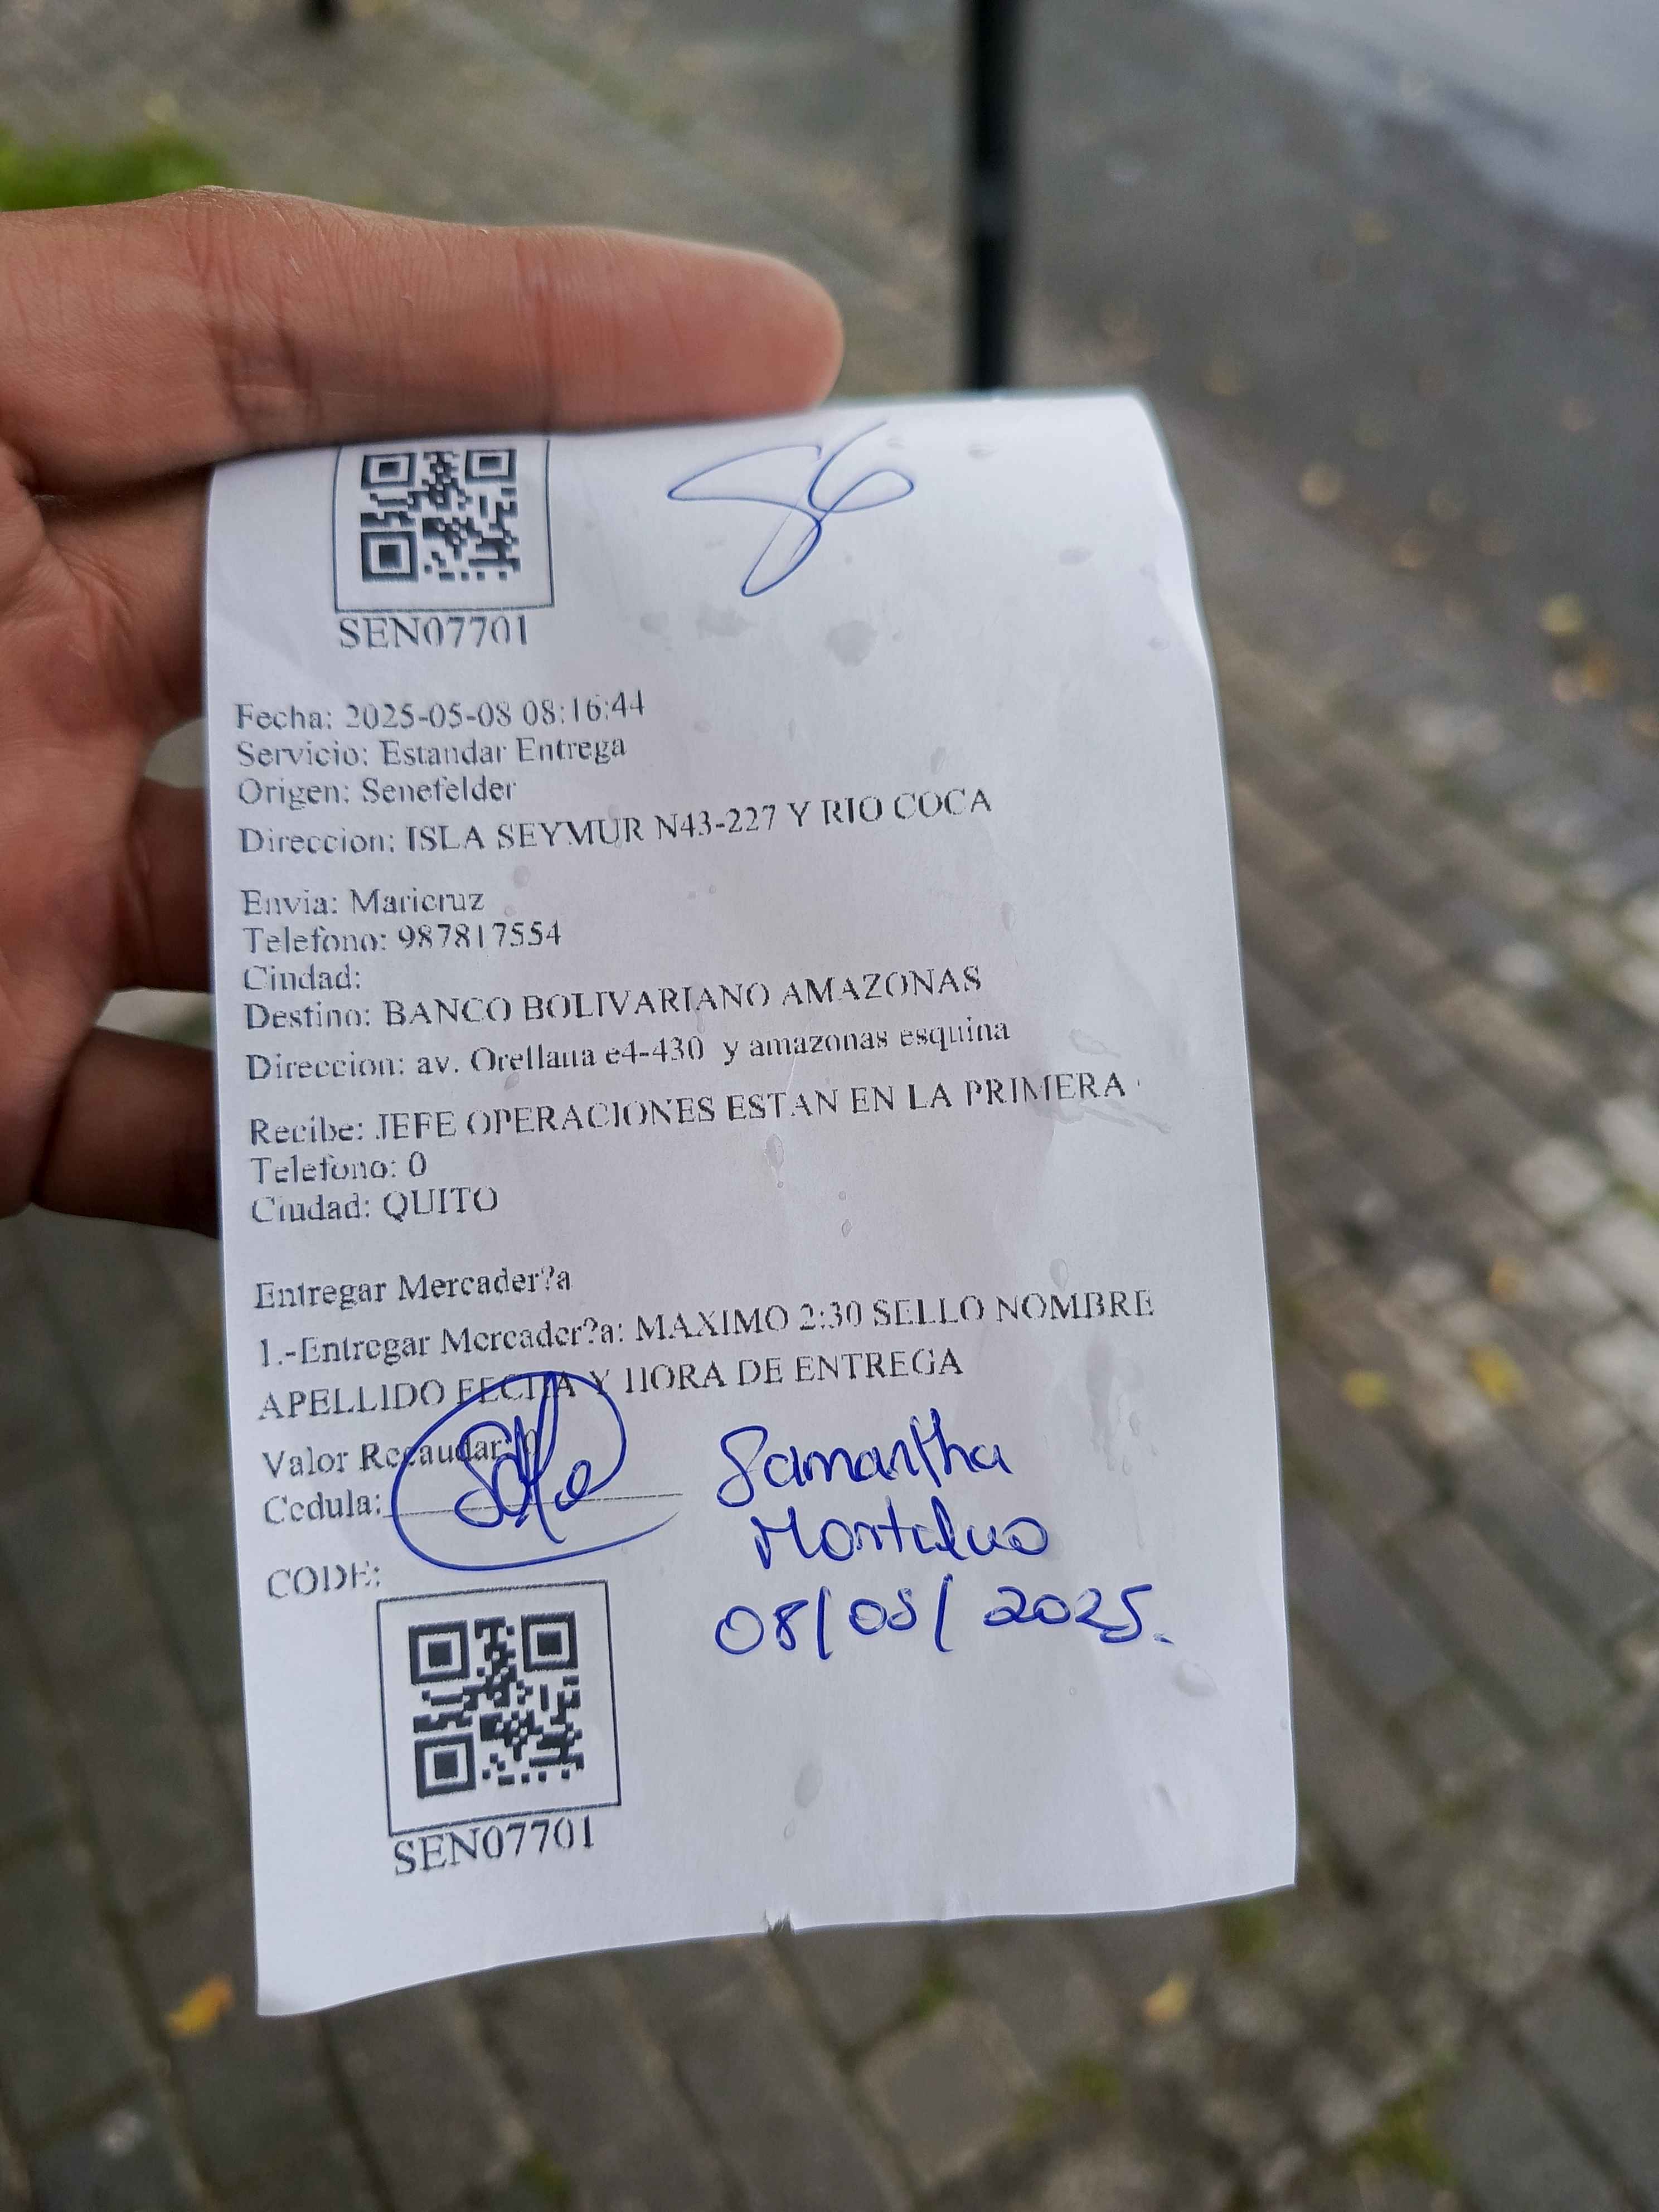 SEN07701
Fecha: 2025-05-08 08:16:44
Servicio: Estandar Entrega
Origen: Senefelder
Direccion: ISLA SEYMUR N43-227 Y RIO COCA
Envia: Maricruz
Telefono: 987817554
Ciudad:
Destino: BANCO BOLIVARIANO AMAZONAS
Direccion: av. Orellana e4-430 y amazonas esquina
Recibe: JEFE OPERACIONES ESTAN EN LA PRIMERA
Telefono: 0
Ciudad: QUITO
Entregar Mercader?a
1.-Entregar Mercader?a: MAXIMO 2:30 SELLO NOMBRE
APELLIDO FECHA Y HORA DE ENTREGA
Valor Recaudar: 0
Cedula:
Samantha
08/05/2025.
CODE:
SEN07701